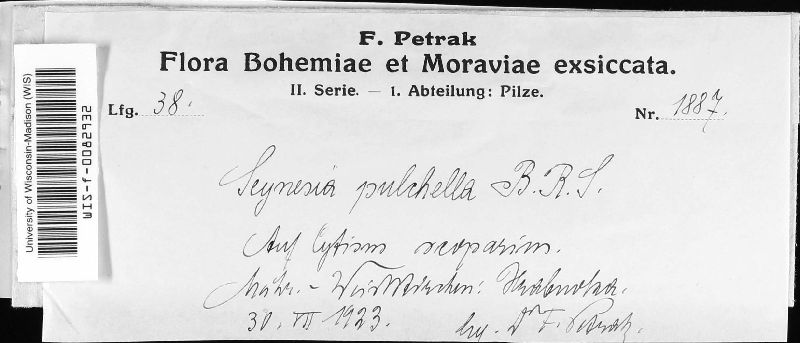 F. Petrak
Flora Bohemiae et Moraviae exsiccata.
II. Serie. — 1. Abteilung: Pilze.
Lfg. 38.
Nr. 1887.
Seynesia pulchella B. R. S.
Auf Cytisus scoparius.
Mähr.-Weisskirchen: Hrabuvka.
30. VII 1923. leg. Dr F. Petrak.
University of Wisconsin-Madison (WIS)
WIS-f-0082932